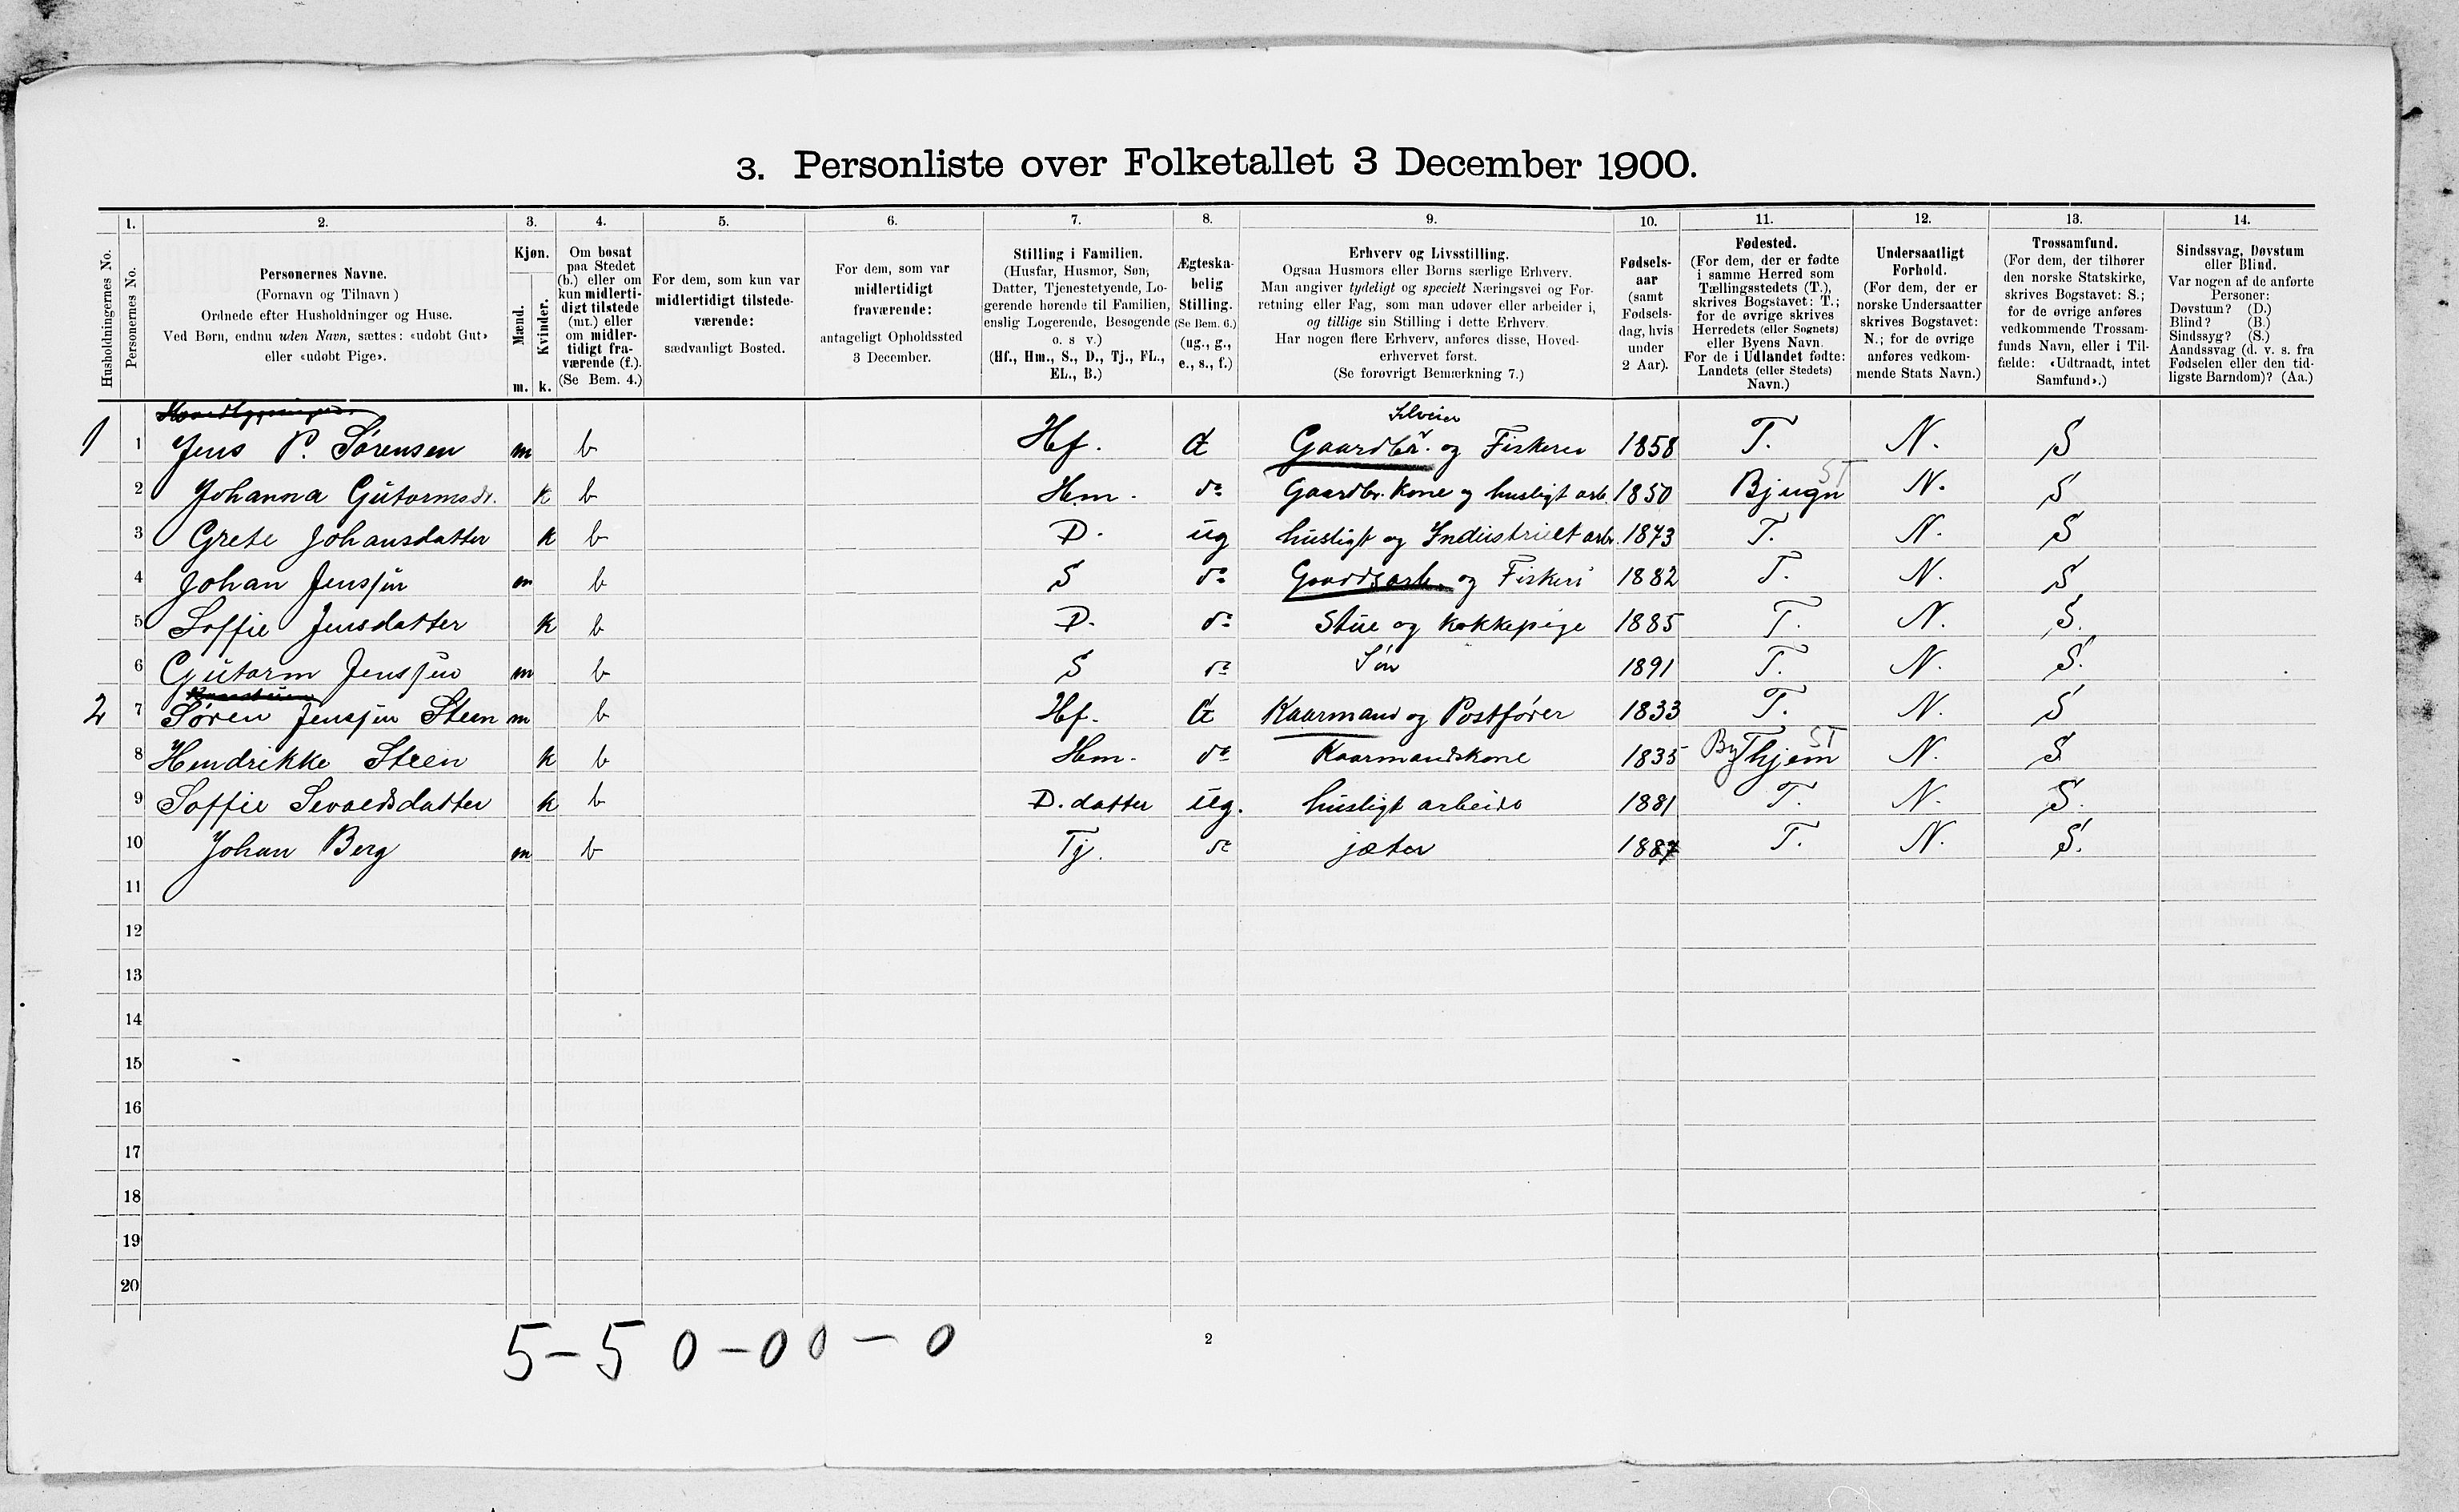 3. Personliste over Folketallet 3 December 1900.
Husholdningernes No.
1.
Personernes No.
2.
Personernes Navne.
(Fornavn og Tilnavn)
Ordnede efter Husholdninger og Huse.
Ved Børn, endnu uden Navn, sættes: «udøbt Gut»
eller «udøbt Pige».
3.
Kjøn.
Mænd.
m.
Kvinder.
k.
4.
Om bosat
paa Stedet
(b.) eller om
kun midlerti-
digt tilstede
(mt.) eller
om midler-
tidigt fra-
værende (f.).
(Se Bem. 4.)
5.
For dem, som kun var
midlertidigt tilstede-
værende:
sædvanligt Bosted.
6.
For dem, som var
midlertidigt
fraværende:
antageligt Opholdssted
3 December.
7.
Stilling i Familien.
(Husfar, Husmor, Søn,
Datter, Tjenestetyende, Lo-
gerende hørende til Familien,
enslig Logerende, Besøgende
o. s. v.)
(Hf., Hm., S., D., Tj., FL.,
EL., B.)
8.
Ægteska-
belig
Stilling.
(Se Bem. 6.)
(ug., g.,
e., s., f.)
9.
Erhverv og Livsstilling.
Ogsaa Husmors eller Børns særlige Erhverv.
Man angiver tydeligt og specielt Næringsvei og For-
retning eller Fag, som man udøver eller arbeider i,
og tillige sin Stilling i dette Erhverv.
Har nogen flere Erhverv, anføres disse, Hoved-
erhvervet først.
(Se forøvrigt Bemærkning 7.)
10.
Fødsels-
aar
(samt
Fødsels-
dag, hvis
under
2 Aar).
11.
Fødested.
(For dem, der er fødte
i samme Herred som
Tællingsstedets (T.),
skrives Bogstavet: T.;
for de øvrige skrives
Herredets (eller Sognets)
eller Byens Navn.
For de i Udlandet fødte:
Landets (eller Stedets)
Navn.)
12.
Undersaatligt
Forhold.
(For dem, der er
norske Undersaatter
skrives Bogstavet:
N.; for de øvrige
anføres vedkom-
mende Stats Navn.)
13.
Trossamfund.
(For dem, der tilhører
den norske Statskirke,
skrives Bogstavet: S.;
for de øvrige anføres
vedkommende Trossam-
funds Navn, eller i Til-
fælde: «Udtraadt, intet
Samfund».)
14.
Sindssvag, Døvstum
eller Blind.
Var nogen af de anførte
Personer:
Døvstum? (D.)
Blind? (B.)
Sindssyg? (S.)
Aandssvag (d. v. s. fra
Fødselen eller den tid-
ligste Barndom)? (Aa.)
Hovedbygningen
Selveier
1 1 Jens P. Sørensen m b Hf. G Gaardbr. og Fiskeri 1858 T. N. S
2 Johanna Gutormsdr. k b Hm. do Gaardbr. Kone og husligt arb. 1850 Bjugn ST N. S
3 Grete Johansdatter k b D. ug husligt og Industrielt arb. 1873 T. N. S
4 Johan Jenssen m b S do Gaardsarb. og Fiskeri 1882 T. N. S
5 Soffie Jensdatter k b D. do Stue og kokkepige 1885 T. N. S.
6 Gutorm Jenssen m b S do Søn 1891 T. N. S.
2 7 Søren Jenssen Steen m b Hf. G Kaarmand og Postfører 1833 T. N. S
8 Hendrikke Steen k b Hm. do Kaarmandskone 1835 ST N. S
9 Soffie Sevaldsdatter k b D. datter ug. husligt arbeide 1881 T. N. S.
10 Johan Berg m b Tj. do jæter 1887 T. N. S.
11
12
13
14
15
16
17
18
19
20
5-5 0-0 0-0
2